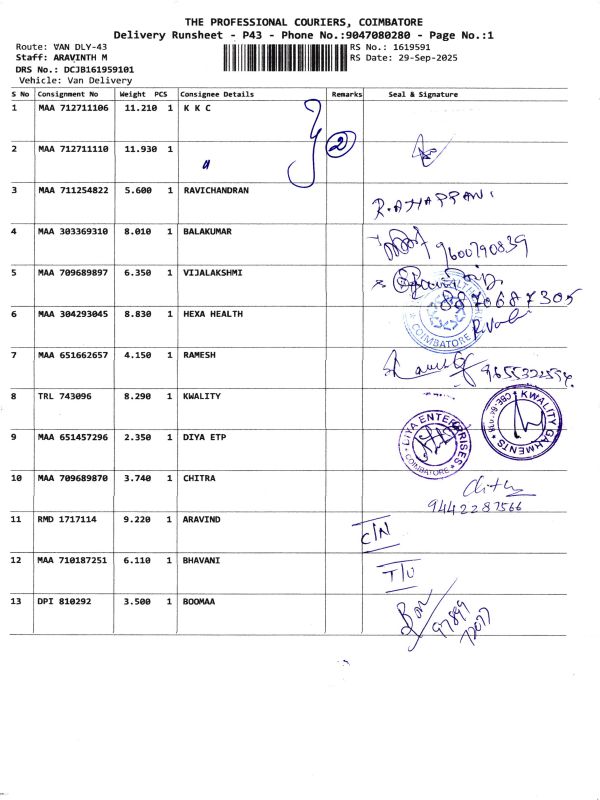 THE PROFESSIONAL COURIERS, COIMBATORE
Delivery Runsheet - P43 - Phone No.:9047080280 - Page No.:1
Route: VAN DLY-43 RS No.: 1619591
Staff: ARAVINTH M RS Date: 29-Sep-2025
DRS No.: DCJB161959101
Vehicle: Van Delivery
S No Consignment No Weight PCS Consignee Details Remarks Seal & Signature
1 MAA 712711106 11.210 1 K K C
2 MAA 712711110 11.930 1 " 2
3 MAA 711254822 5.600 1 RAVICHANDRAN R.ATHAPPAN
4 MAA 303369310 8.010 1 BALAKUMAR 9600790839
5 MAA 709689897 6.350 1 VIJALAKSHMI 8870687305
6 MAA 304293045 8.830 1 HEXA HEALTH COIMBATORE
7 MAA 651662657 4.150 1 RAMESH
8 TRL 743096 8.290 1 KWALITY KWALITY GARMENTS
9 MAA 651457296 2.350 1 DIYA ETP DIYA ENTERPRISES COIMBATORE
10 MAA 709689870 3.740 1 CHITRA Chitra
9442287566
11 RMD 1717114 9.220 1 ARAVIND C/N
12 MAA 710187251 6.110 1 BHAVANI T/U
13 DPI 810292 3.500 1 BOOMAA 97899
72077